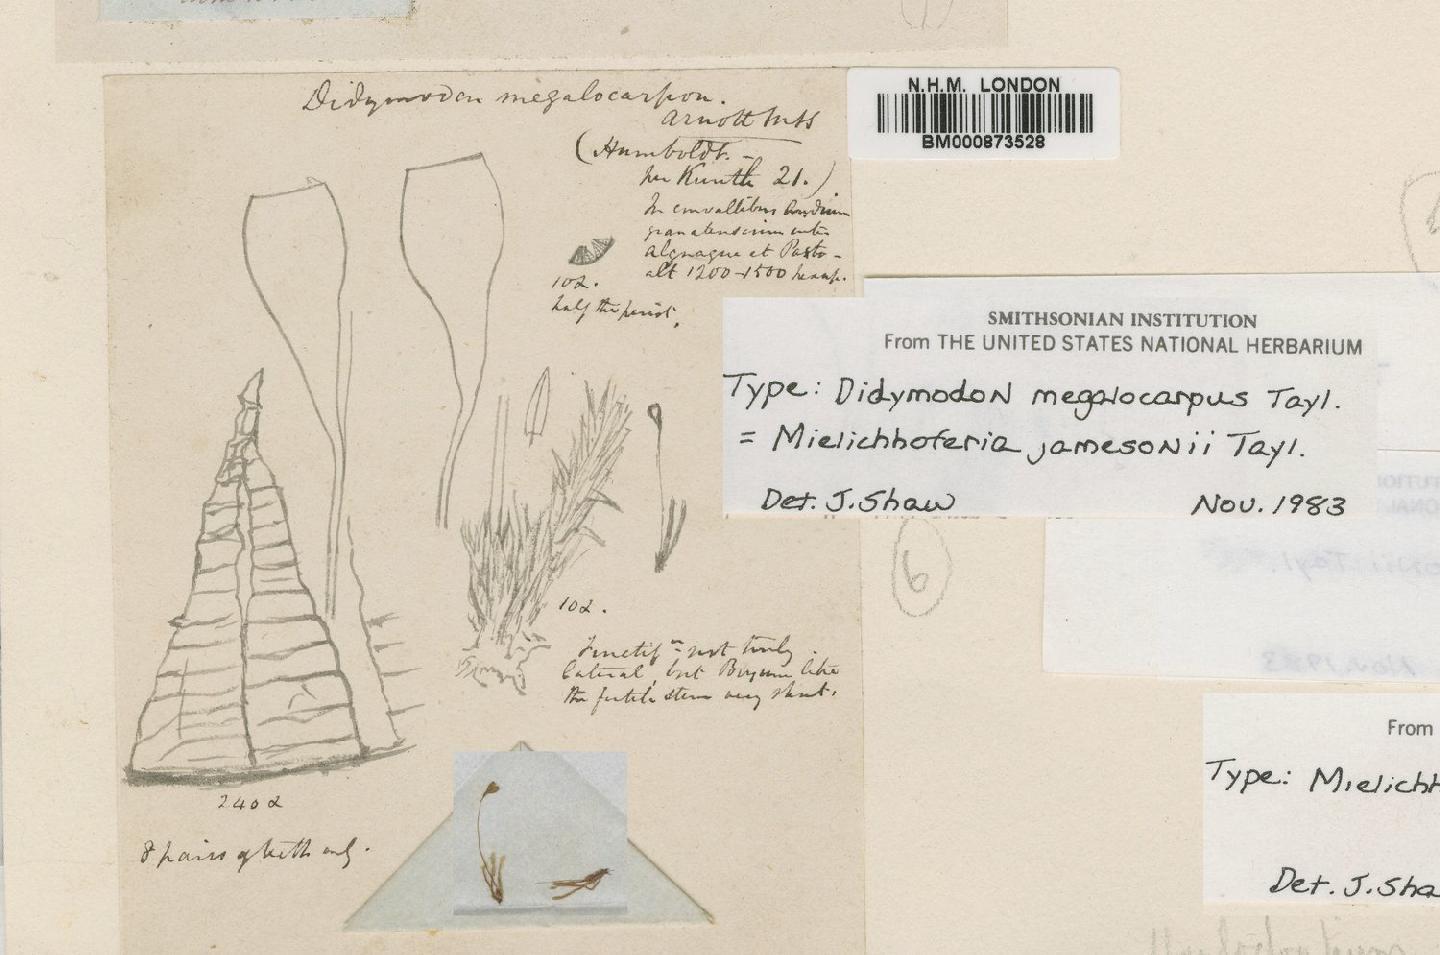 Didymodon megalocarpon.
Arnott Mss
(Humboldt. -
per Kunth 21.)
In convallibus Andium
granatensium inter
et Pasto -
alt 1200-1500 hexap.
102.
half the perist.
N.H.M. LONDON
BM000873528
SMITHSONIAN INSTITUTION
From THE UNITED STATES NATIONAL HERBARIUM
Type: Didymodon megalocarpus Tayl.
= Mielichhoferia jamesonii Tayl.
Det. J. Shaw Nov. 1983
6
102.
Fructifn not truly
lateral, but Bryum like
the fertile stem very short.
240 2
8 pairs of teeth only.
From
Type: Mielichh
Det. J. Sha